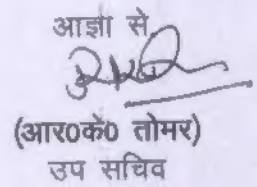 आज्ञा से
(आर0के0 तोमर)
उप सचिव